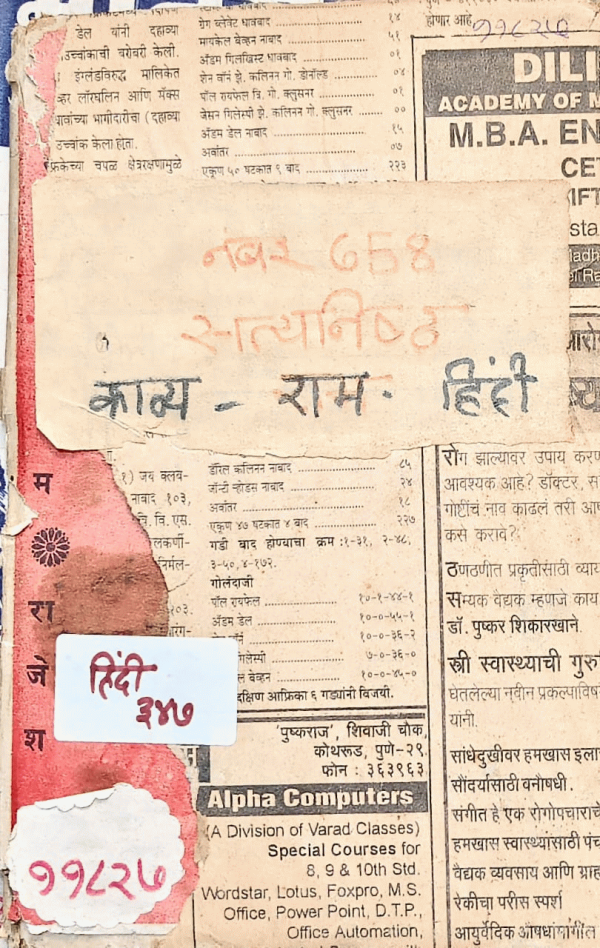 डेल यांनी दहाव्या
उच्चांकाची बरोबरी केली.
इंग्लंडविरुद्ध मालिकेत
व्हर लॉरघलिन आणि मॅक्स
यावांच्या भागीदारीचा (दहाव्या
उच्चांक केला होता.
फ्रिकेच्या चपळ क्षेत्ररक्षणामुळे
ग्रेग ब्लेवेट धावबाद १४
मायकेल बेव्हन नाबाद ५१
ॲडम गिलख्रिस्ट धावबाद ०१
शेन वॉर्न झे. कलिनन गो. डोनॉल्ड ०४
पॉल रायफेल त्रि. गो. क्लुसनर ०१
जेसन गिलेस्पी झे. कलिनन गो. क्लुसनर ००
ॲडम डेल नाबाद १५
अवांतर ०७
एकूण ५० षटकात ९ बाद २२३
होणार आहे.
११८२७
DILI
ACADEMY OF M
M.B.A. EN
CET
नंबर 658
सत्यनिष्ठ
काव्य - राम. हिंदी
म
रा
जे
श
१) जव क्लव-
नाबाद १०३,
वि. वि. एस.
लकर्णी-
निर्मल-
१०३.
डॅरिल कलिनन नाबाद ८५
जॉन्टी ऱ्होडस नाबाद २४
अवांतर १८
एकूण ४७ षटकात ४ बाद २२७
गडी बाद होण्याचा क्रम :१-३१, २-४८,
३-५०, ४-१७२.
गोलंदाजी
पॉल रायफेल १०-१-४४-१
ॲडम डेल १०-०-५५-१
१०-०-३६-२
गिलेस्पी ७-०-३६-०
ल बेव्हन १०-०-४५-०
दक्षिण आफ्रिका ६ गड्यांनी विजयी.
हिंदी
३४७
११८२७
'पुष्कराज', शिवाजी चौक,
कोथरूड, पुणे-२९.
फोन : ३६३९६३
Alpha Computers
(A Division of Varad Classes)
Special Courses for
8, 9 & 10th Std.
Wordstar, Lotus, Foxpro, M.S.
Office, Power Point, D.T.P.,
Office Automation,
रोग झाल्यावर उपाय करण
आवश्यक आहे? डॉक्टर, स
गोष्टींचं नाव काढलं तरी आप
कसे करावे?
ठणठणीत प्रकृतीसाठी व्याय
सम्यक वैद्यक म्हणजे काय
डॉ. पुष्कर शिकारखाने
स्त्री स्वास्थ्याची गुरु
घेतलेल्या नवीन प्रकल्पाविष
यांनी.
सांधेदुखीवर हमखास इला
सौंदर्यासाठी वनौषधी.
संगीत हे एक रोगोपचाराचे
हमखास स्वास्थ्यांसाठी पंच
वैद्यक व्यवसाय आणि ग्राह
रेकीचा परीस स्पर्श
आयुर्वेदिक औषधांमागील